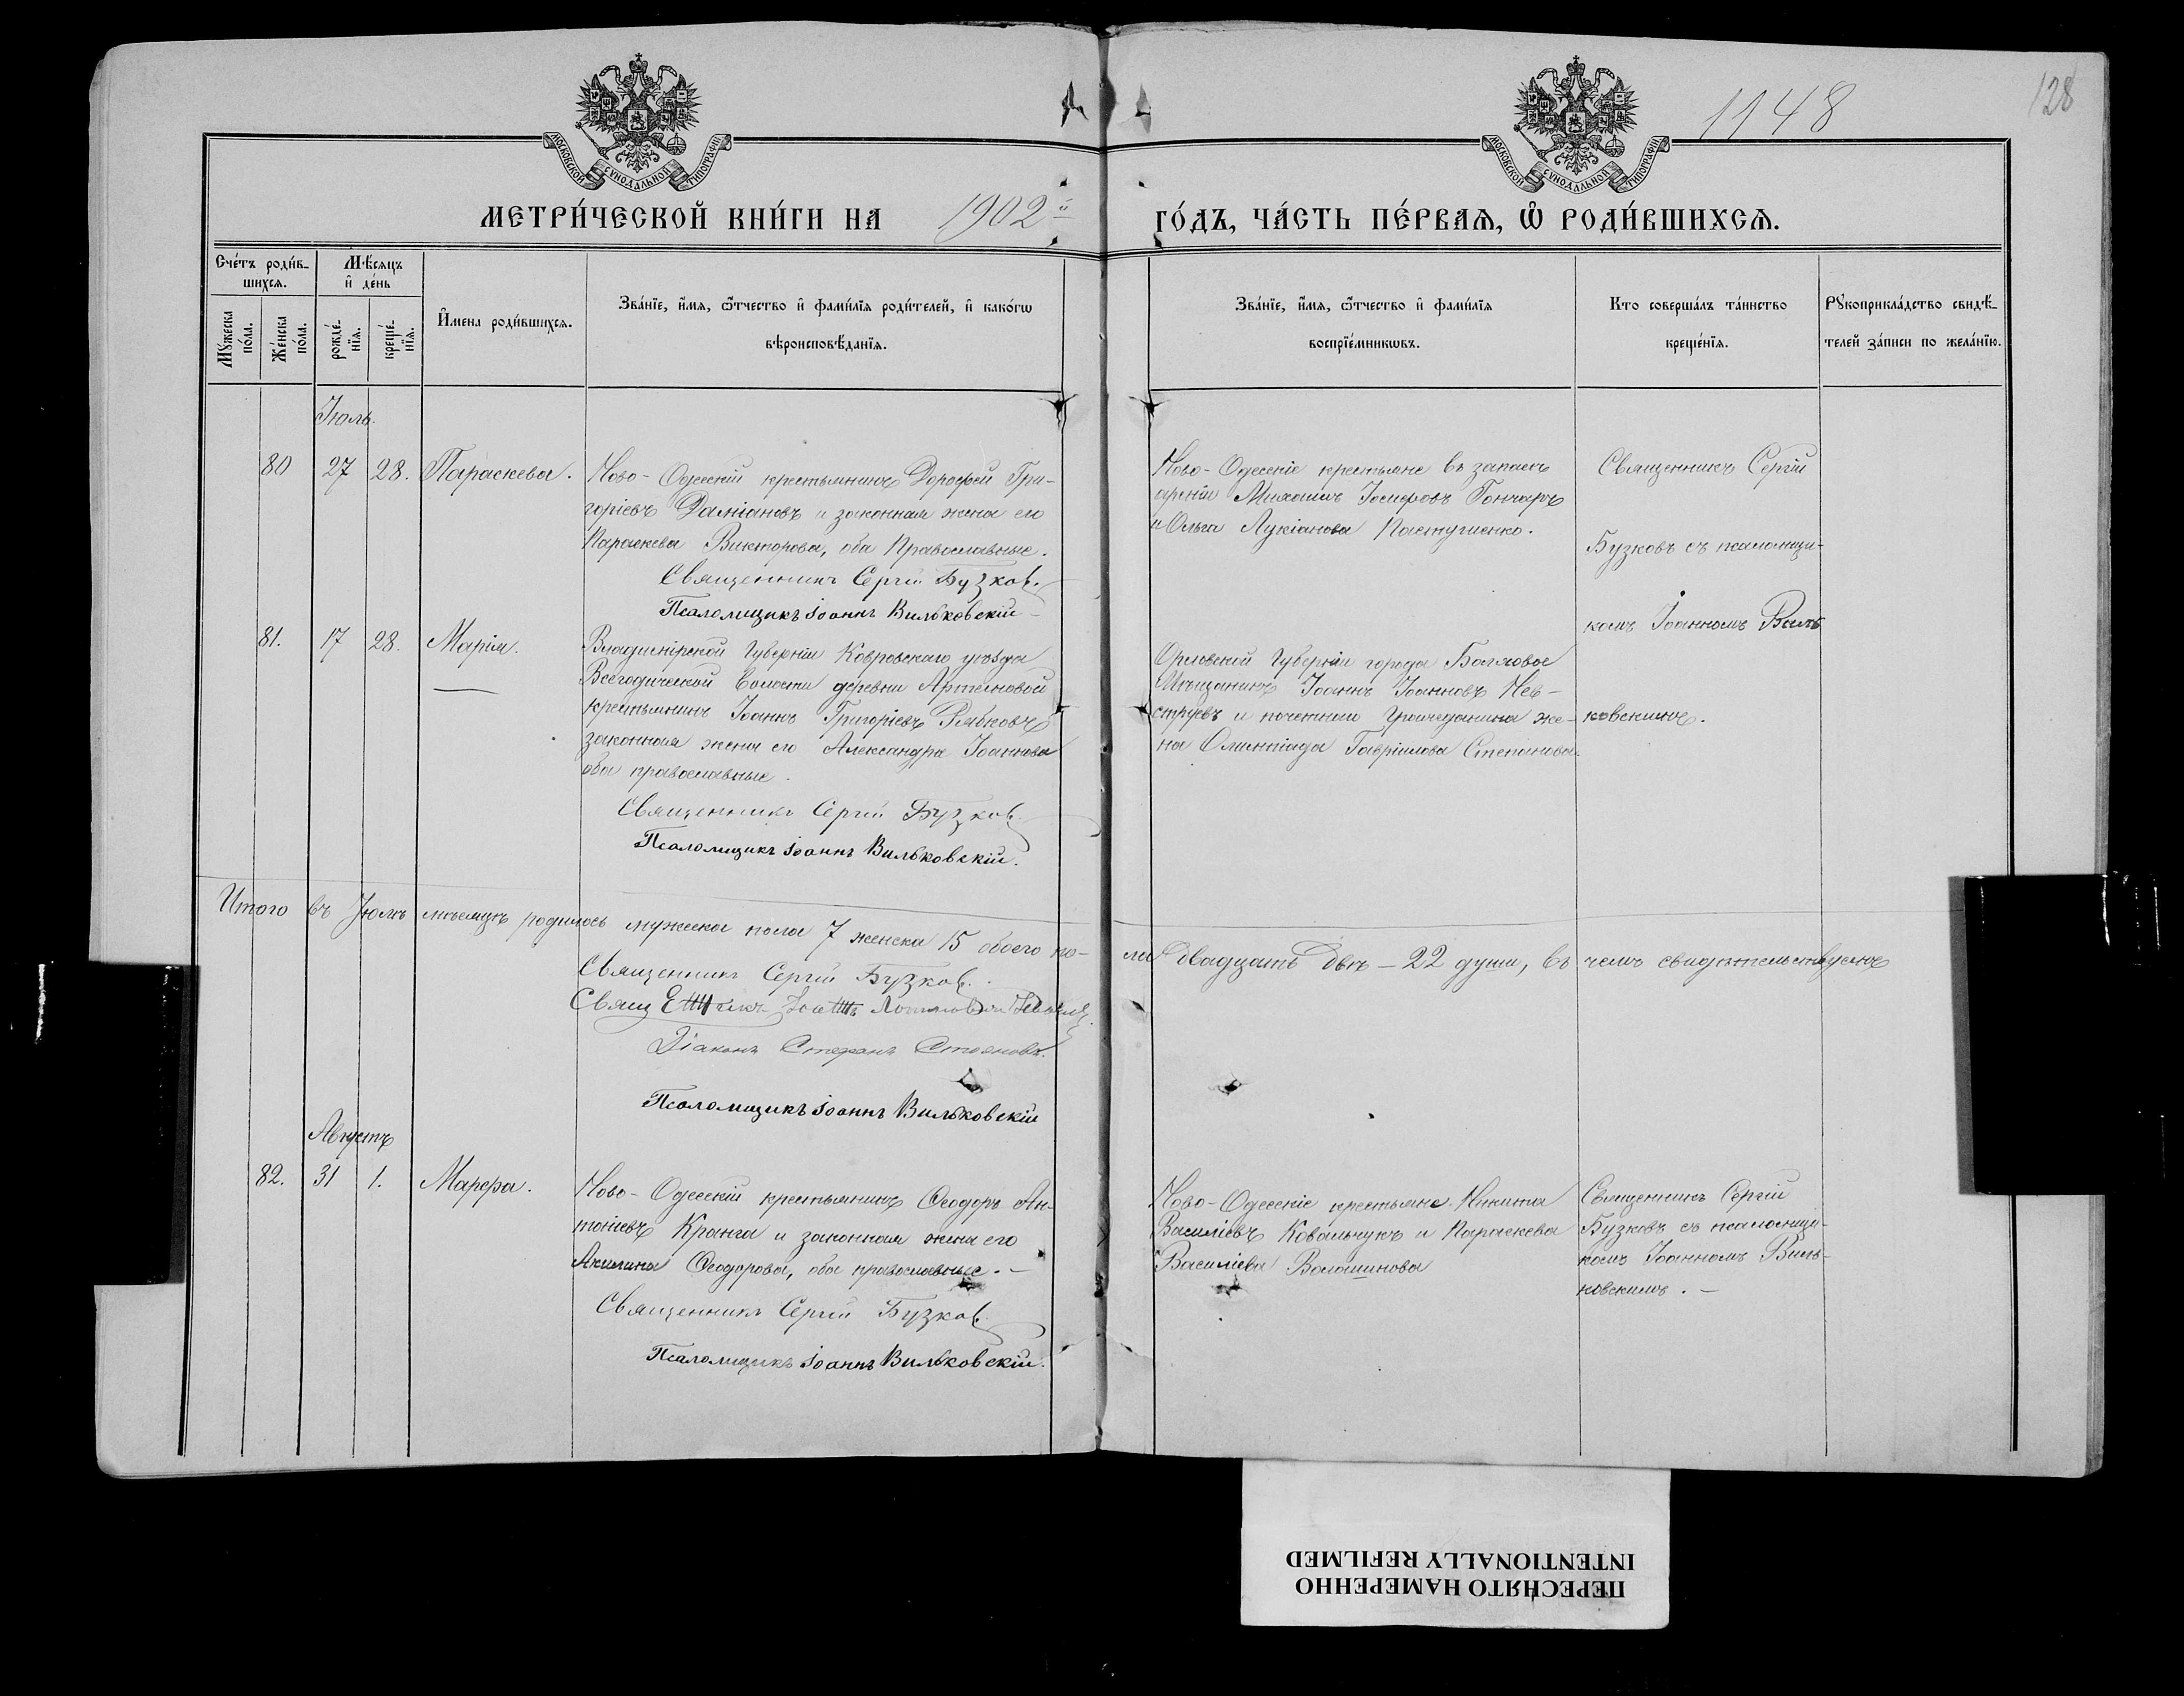 128
1148
МОСКОВСКОЙ СѴНОДАЛЬНОЙ ТИПОГРАФІИ
МОСКОВСКОЙ СѴНОДАЛЬНОЙ ТИПОГРАФІИ
МЕТРИ́ЧЕСКОЙ КНИ́ГИ НА 1902й ГО́ДЪ, ЧА́СТЬ ПЕ́РВАѦ, Ѡ҆ РОДИ́ВШИХСѦ.
Сче́тъ роди́в-
шихсѧ.
Мꙋ́жеска по́ла.
Же́нска по́ла.
Мѣ́сѧцъ
и҆ де́нь
рожде́-
нїѧ.
креще́-
нїѧ.
И҆мена роди́вшихсѧ.
Зва́нїе, и҆́мѧ, ѻ҆́тчество и҆ фами́лїѧ роди́телей, и҆ како́гѡ
вѣроисповѣ́данїѧ.
Зва́нїе, и҆́мѧ, ѻ҆́тчество и҆ фами́лїѧ
воспрїе́мникѡвъ.
Кто соверша́лъ та́инство
креще́нїѧ.
Рꙋкоприкла́дство свидѣ́-
телей за́писи по жела́нїю.
Іюль.
80 27 28. Параскева.
Ново-Одесскій крестьянинъ Дорофей Гри-
горіевъ Даміановъ и законная жена его
Параскева Викторова, оба Православные.
Священникъ Сергій Бузков.
Псаломщикъ Іоаннъ Вильковскій
Ново-Одесскіе крестьяне въ запасѣ
арміи Михаилъ Іосифовъ Гончаръ
и Ольга Лукіанова Пастушенко.
Священникъ Сергій
Бузковъ съ псаломщи-
комъ Іоанномъ Виль
ковскимъ.
81. 17 28. Марія.
Владимірской Губерніи Ковровскаго уѣзда
Всегодической волости деревни Артемовой
крестьянинъ Іоаннъ Григоріевъ Рябковъ
законная жена его Александра Іоаннова
оба православные.
Священникъ Сергій Бузков
Псаломщикъ Іоаннъ Вильковскій.
Орловской Губерніи города Болхова
Мѣщанинъ Іоаннъ Іоанновъ Нев-
струевъ и почетнаго Гражданина же-
на Олимпіада Гавріилова Степанова.
Итого въ Іюлѣ мѣсяцѣ родилось мужеска пола 7 женска 15 обоего по-
ла двадцать двѣ - 22 души, въ чемъ свидѣтельствуемъ
Священникъ Сергій Бузков.
Свящ
Діаконъ Стефанъ Стояновъ.
Псаломщикъ Іоаннъ Вильковскій
Августъ
82. 31 1. Марфа.
Ново-Одесскій крестьянинъ Ѳеодоръ Ан-
тоніевъ Кранга и законная жена его
Акилина Ѳеодорова, оба православные. -
Священникъ Сергій Бузков
Псаломщикъ Іоаннъ Вильковскій.
Ново-Одесскіе крестьяне Никита
Василіевъ Ковальчукъ и Параскева
Василіева Волошинова
Священникъ Сергій
Бузковъ съ псаломщи-
комъ Іоанномъ Виль-
ковскимъ. -
ПЕРЕСНЯТО НАМЕРЕННО
INTENTIONALLY REFILMED